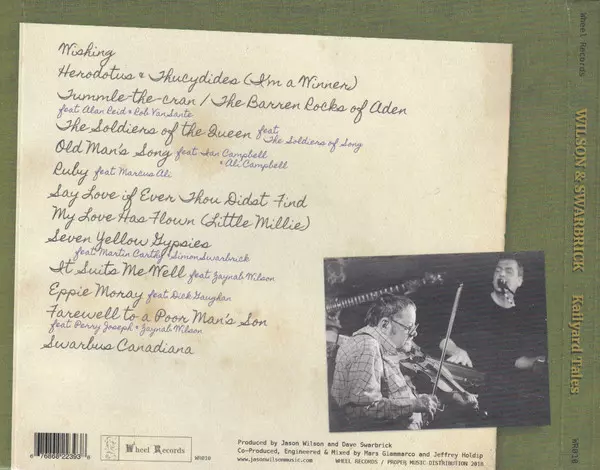 Wishing
Herodotus & Thucydides (I'm a Winner)
Tummle-the-cran / The Barren Rocks of Aden
feat Alan Reid & Rob VanSante
The Soldiers of the Queen feat The Soldiers of Song
Old Man's Song feat Ian Campbell & Ali Campbell
Ruby feat Marcus Ali
Say Love if Ever Thou Didst Find
My Love Has Flown (Little Millie)
Seven Yellow Gypsies
feat Martin Carthy & Simon Swarbrick
It Suits Me Well feat Zaynab Wilson
Eppie Moray feat Dick Gaughan
Farewell to a Poor Man's Son
feat Perry Joseph & Zaynab Wilson
Swarbus Canadiana
Wheel Records
WR010
Produced by Jason Wilson and Dave Swarbrick
Co-Produced, Engineered & Mixed by Mars Giammarco and Jeffrey Holdip
www.jasonwilsonmusic.com
WHEEL RECORDS / PROPER MUSIC DISTRIBUTION
Wheel Records
WILSON & SWARBRICK
Kailyard Tales
WR010